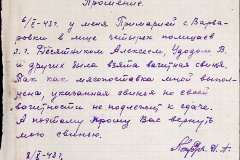 Прошение.
6/X-43 г. у меня Примарией с. Варва-
ровки в лице четырех полицаев
Десятником Алексеем, Удодом В.
и других была взята вагитная свиня.
Так как мясопоставка мной выпол-
нена, указанная свиня по своей
вагитности не подлежит к сдаче.
А поэтому прошу Вас вернуть
мою свиню.
8/X-43 г.